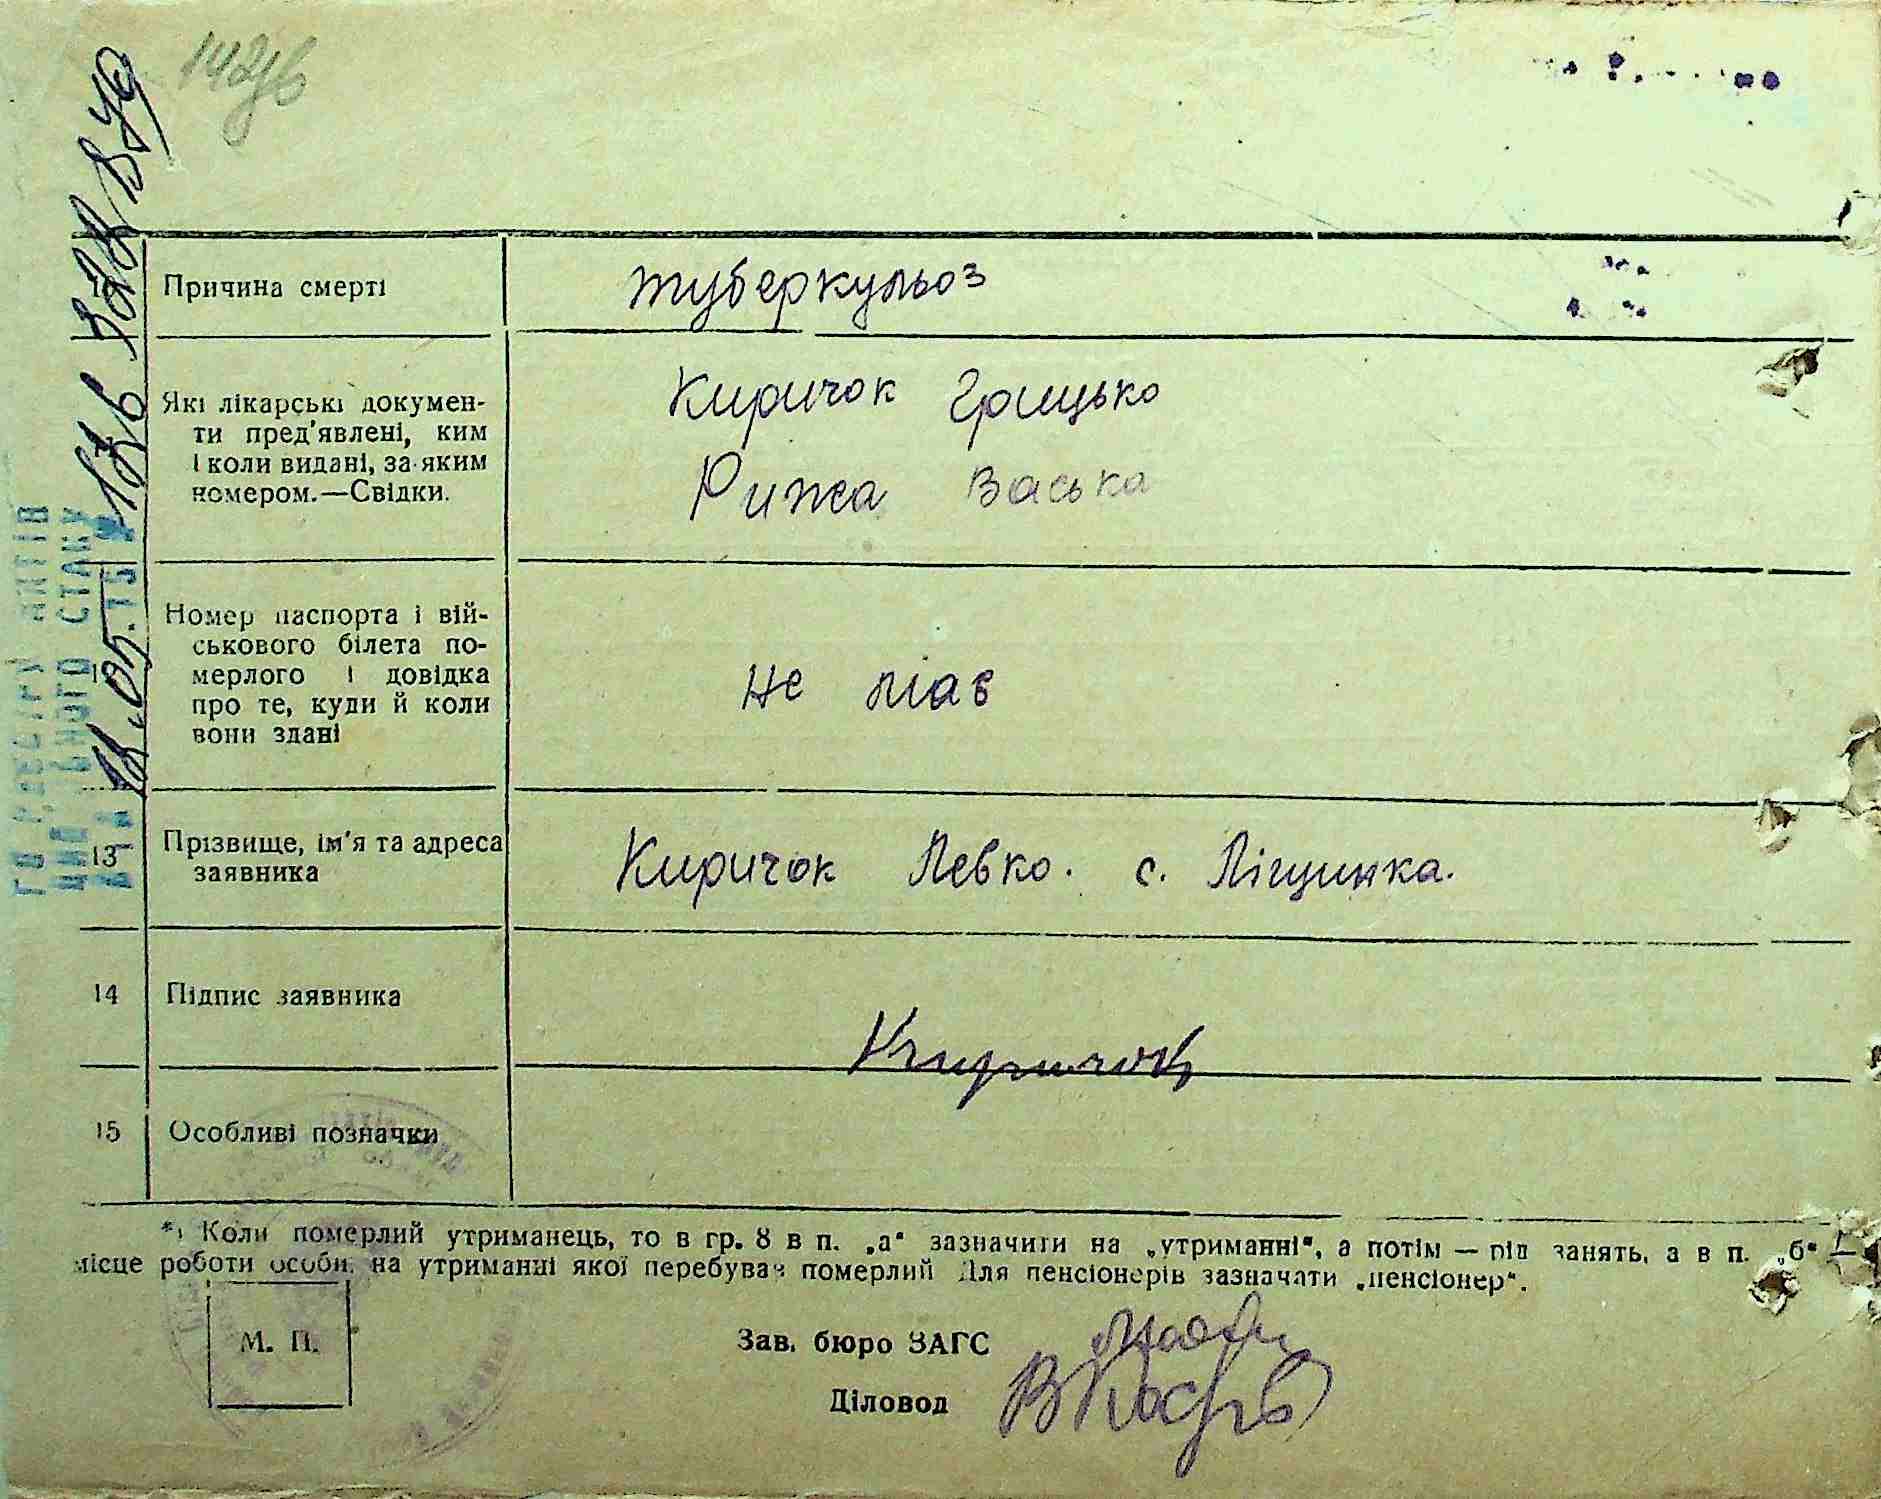 Причина смерті
туберкульоз
Які лікарські докумен-
ти пред'явлені, ким
і коли видані, за яким
номером.—Свідки.
Киричок Грицько
Рижа Васька
Номер паспорта і вій-
ськового білета по-
мерлого і довідка
про те, куди й коли
вони здані
не має
13
Прізвище, ім'я та адреса
заявника
Киричок Левко. с. Ліщинка.
14
Підпис заявника
Киричок
15
Особливі позначки
*) Коли померлий утриманець, то в гр. 8 в п. „а“ зазначити на „утриманні“, а потім — рід занять, а в п. „б“ —
місце роботи особи, на утриманні якої перебував померлий Для пенсіонерів зазначати „пенсіонер“.
М. П.
Зав. бюро ЗАГС
Діловод